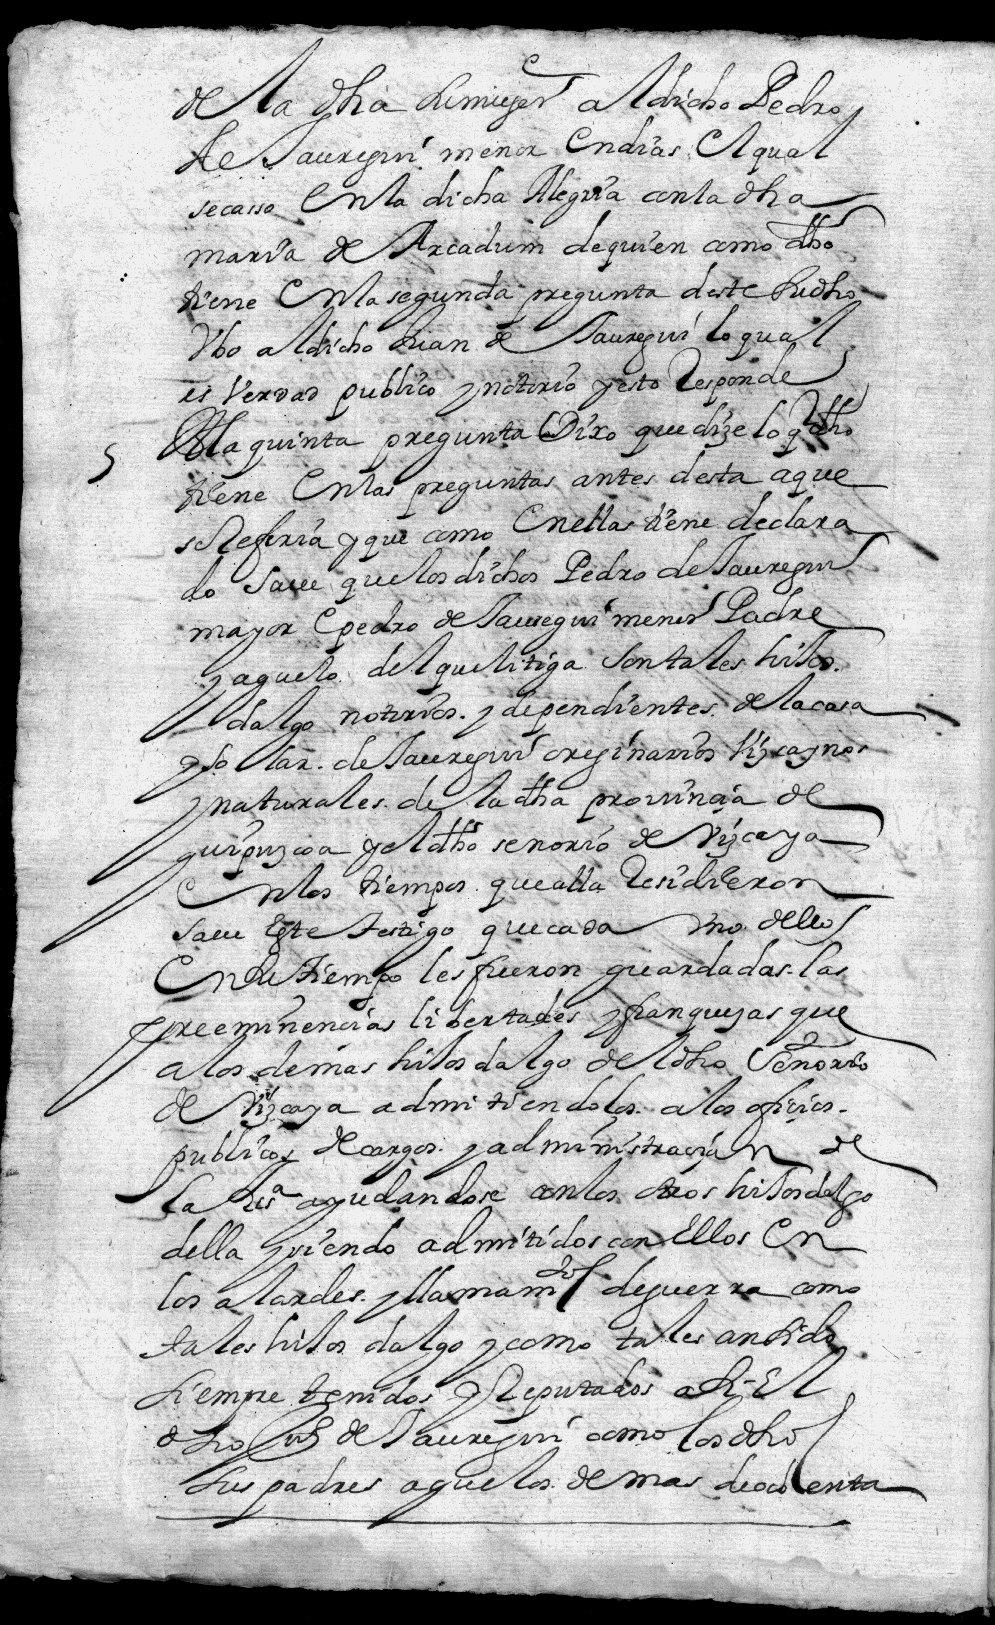 de la dha su muger al dicho Pedro
de Jauregui menor en dias El qual
se casso En la dicha Alegria con la dha
maria de Arcadum de quien como dho
tiene En la segunda pregunta deste su dho
Vbo al dicho Juan de Jauregui lo qual
es Verdad publico y notorio y esto Responde
5 A la quinta pregunta Dixo que dize lo q dho
tiene En las preguntas antes desta a que
se Referia y que como En ellas tiene declara
do Saue que los dichos Pedro de Jauregui
mayor E pedro de Jauregui menor Padre
y aguelo del que litiga Son tales hijos
dalgo notorios y dependientes de la casa
y solar de Jauregui originarios Vizcaynos
y naturales de la dha prouincia de
guipuzcoa y el dho senorio de Vizcaya
En los tiempos que alla Residieron
saue Este testigo que cada Vno dellos
En su tiempo les fueron guardadas las
preeminencias libertades y franquezas que
a los demas hijos dalgo del dho Senorio
de Vizcaya admitiendolos a los oficios
publicos de cargos y administracion de
la Jusª ayudandose con los otros hijos dalgo
della y siendo admitidos con Ellos En
los alardes y llamamtos de guerra como
tales hijos dalgo y como tales an sido
siempre tenidos y Reputados asi El
dho Juº de Jauregui como los dhos
sus padres aguelos de mas de ochenta